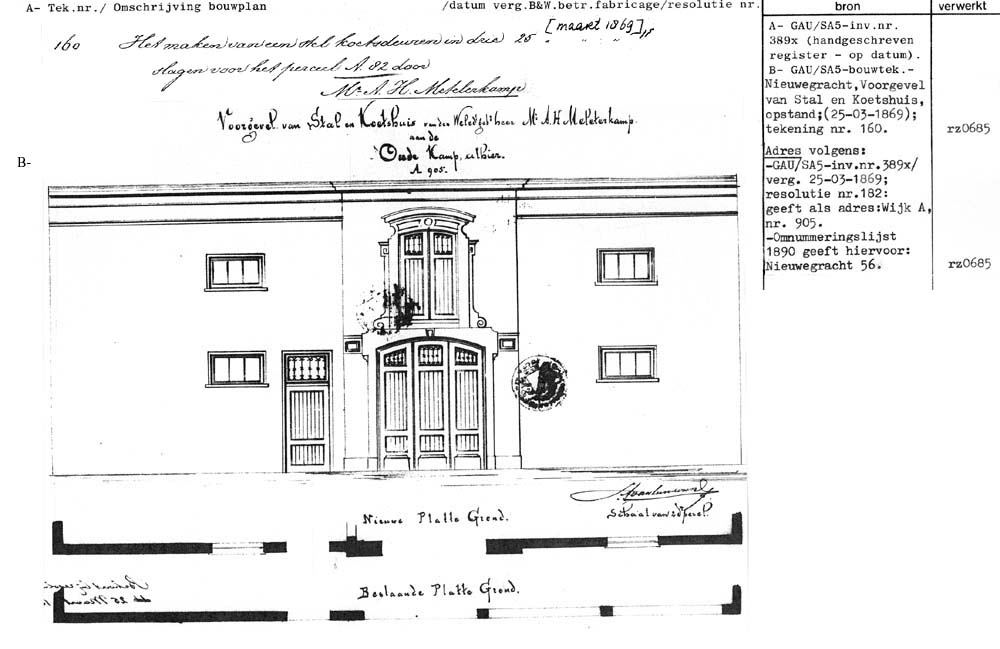 A- Tek.nr./ Omschrijving bouwplan
/datum verg.B&W.betr.fabricage/resolutie nr.
bron
verwerkt
160 Het maken van een stel koetsdeuren in drie 25 [maart 1869]
slagen voor het perceel A. 82 door
Mr. A. H. Metelerkamp
Voorgevel van Stal en Koetshuis van den WelEdgb. heer Mr. A. H. Meteterkamp.
aan de
Oude Kamp, alhier.
A 905.
B-
A- GAU/SA5-inv.nr.
389x (handgeschreven
register - op datum).
B- GAU/SA5-bouwtek.-
Nieuwegracht,Voorgevel
van Stal en Koetshuis,
opstand;(25-03-1869);
tekening nr. 160.
rz0685
Adres volgens:
-GAU/SA5-inv.nr.389x/
verg. 25-03-1869;
resolutie nr.182:
geeft als adres:Wijk A,
nr. 905.
-Omnummeringslijst
1890 geeft hiervoor:
Nieuwegracht 56.
rz0685
Schaal van
Nieuwe Platte Grond.
Bestaande Platte Grond.